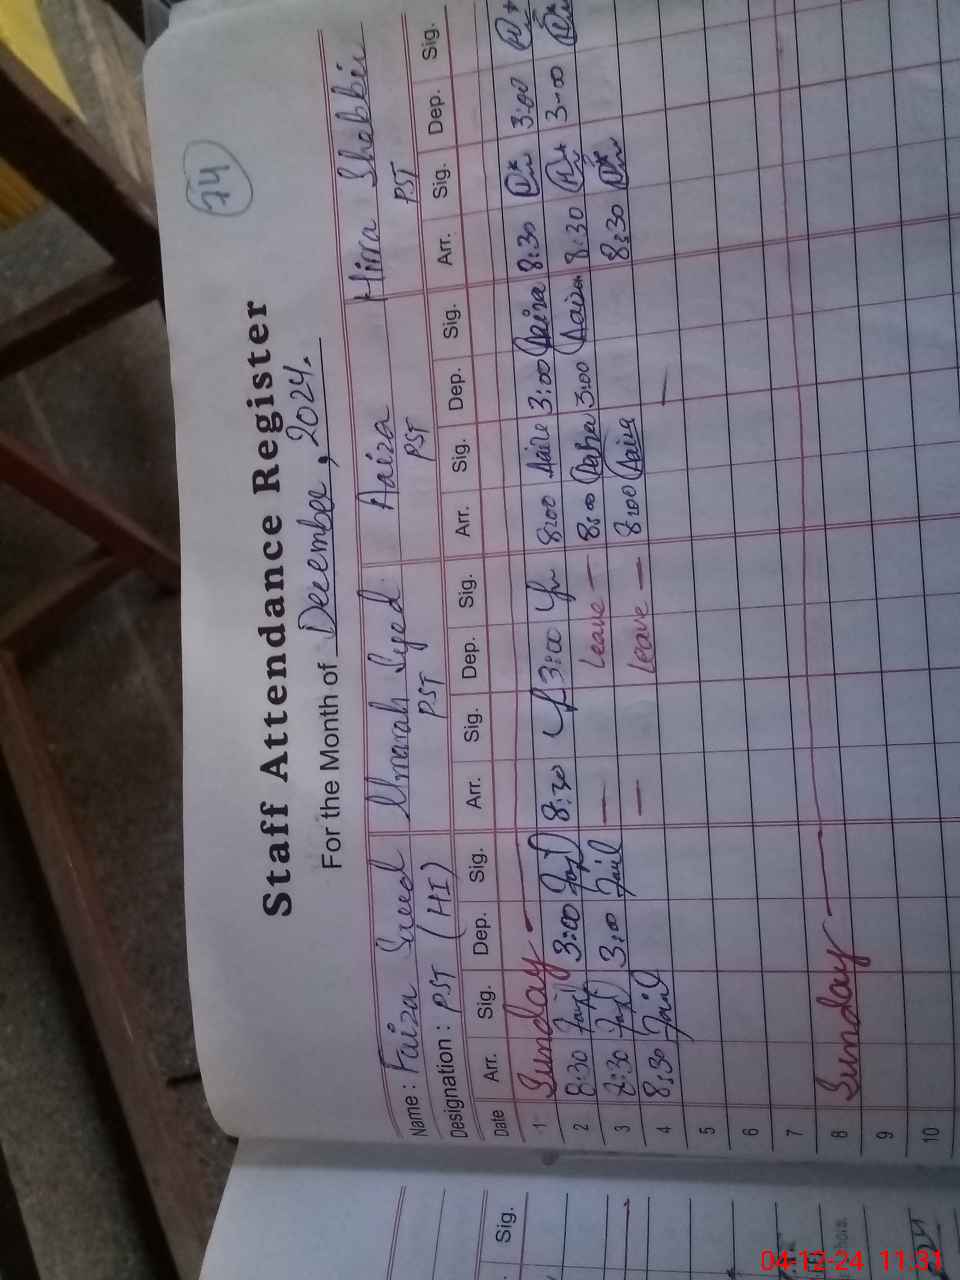 74
Staff Attendance Register
For the Month of December, 2024.
Name : Faiza Saeed Umarah Syed Aaiza Hirra Shabbir
Designation : PST (HI) PST PST PST
Date Arr. Sig. Dep. Sig. Arr. Sig. Dep. Sig. Arr. Sig. Dep. Sig. Arr. Sig. Dep. Sig.
1 Sunday
2 8:30 3:00 8:30 3:00 8:00 3:00 Aaiza 8:30 3:00
3 8:30 3:00 — Leave — 8:00 3:00 Aaiza 8:30 3-00
4 8:30 — Leave — 8:00 Aaiza 8:30
5
6
7
8 Sunday
9
10
Sig.
04-12-24 11:31